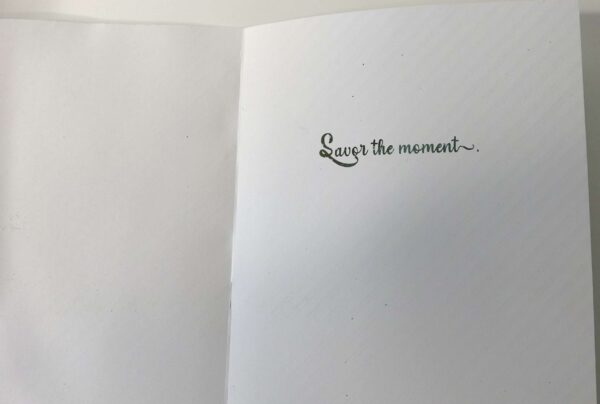 Savor the moment.